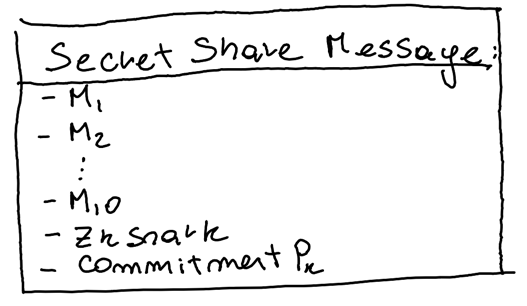 Secret Share Message:
- M₁
- M₂
⋮
- M₁₀
- Zk snark
- Commitment Pₖ